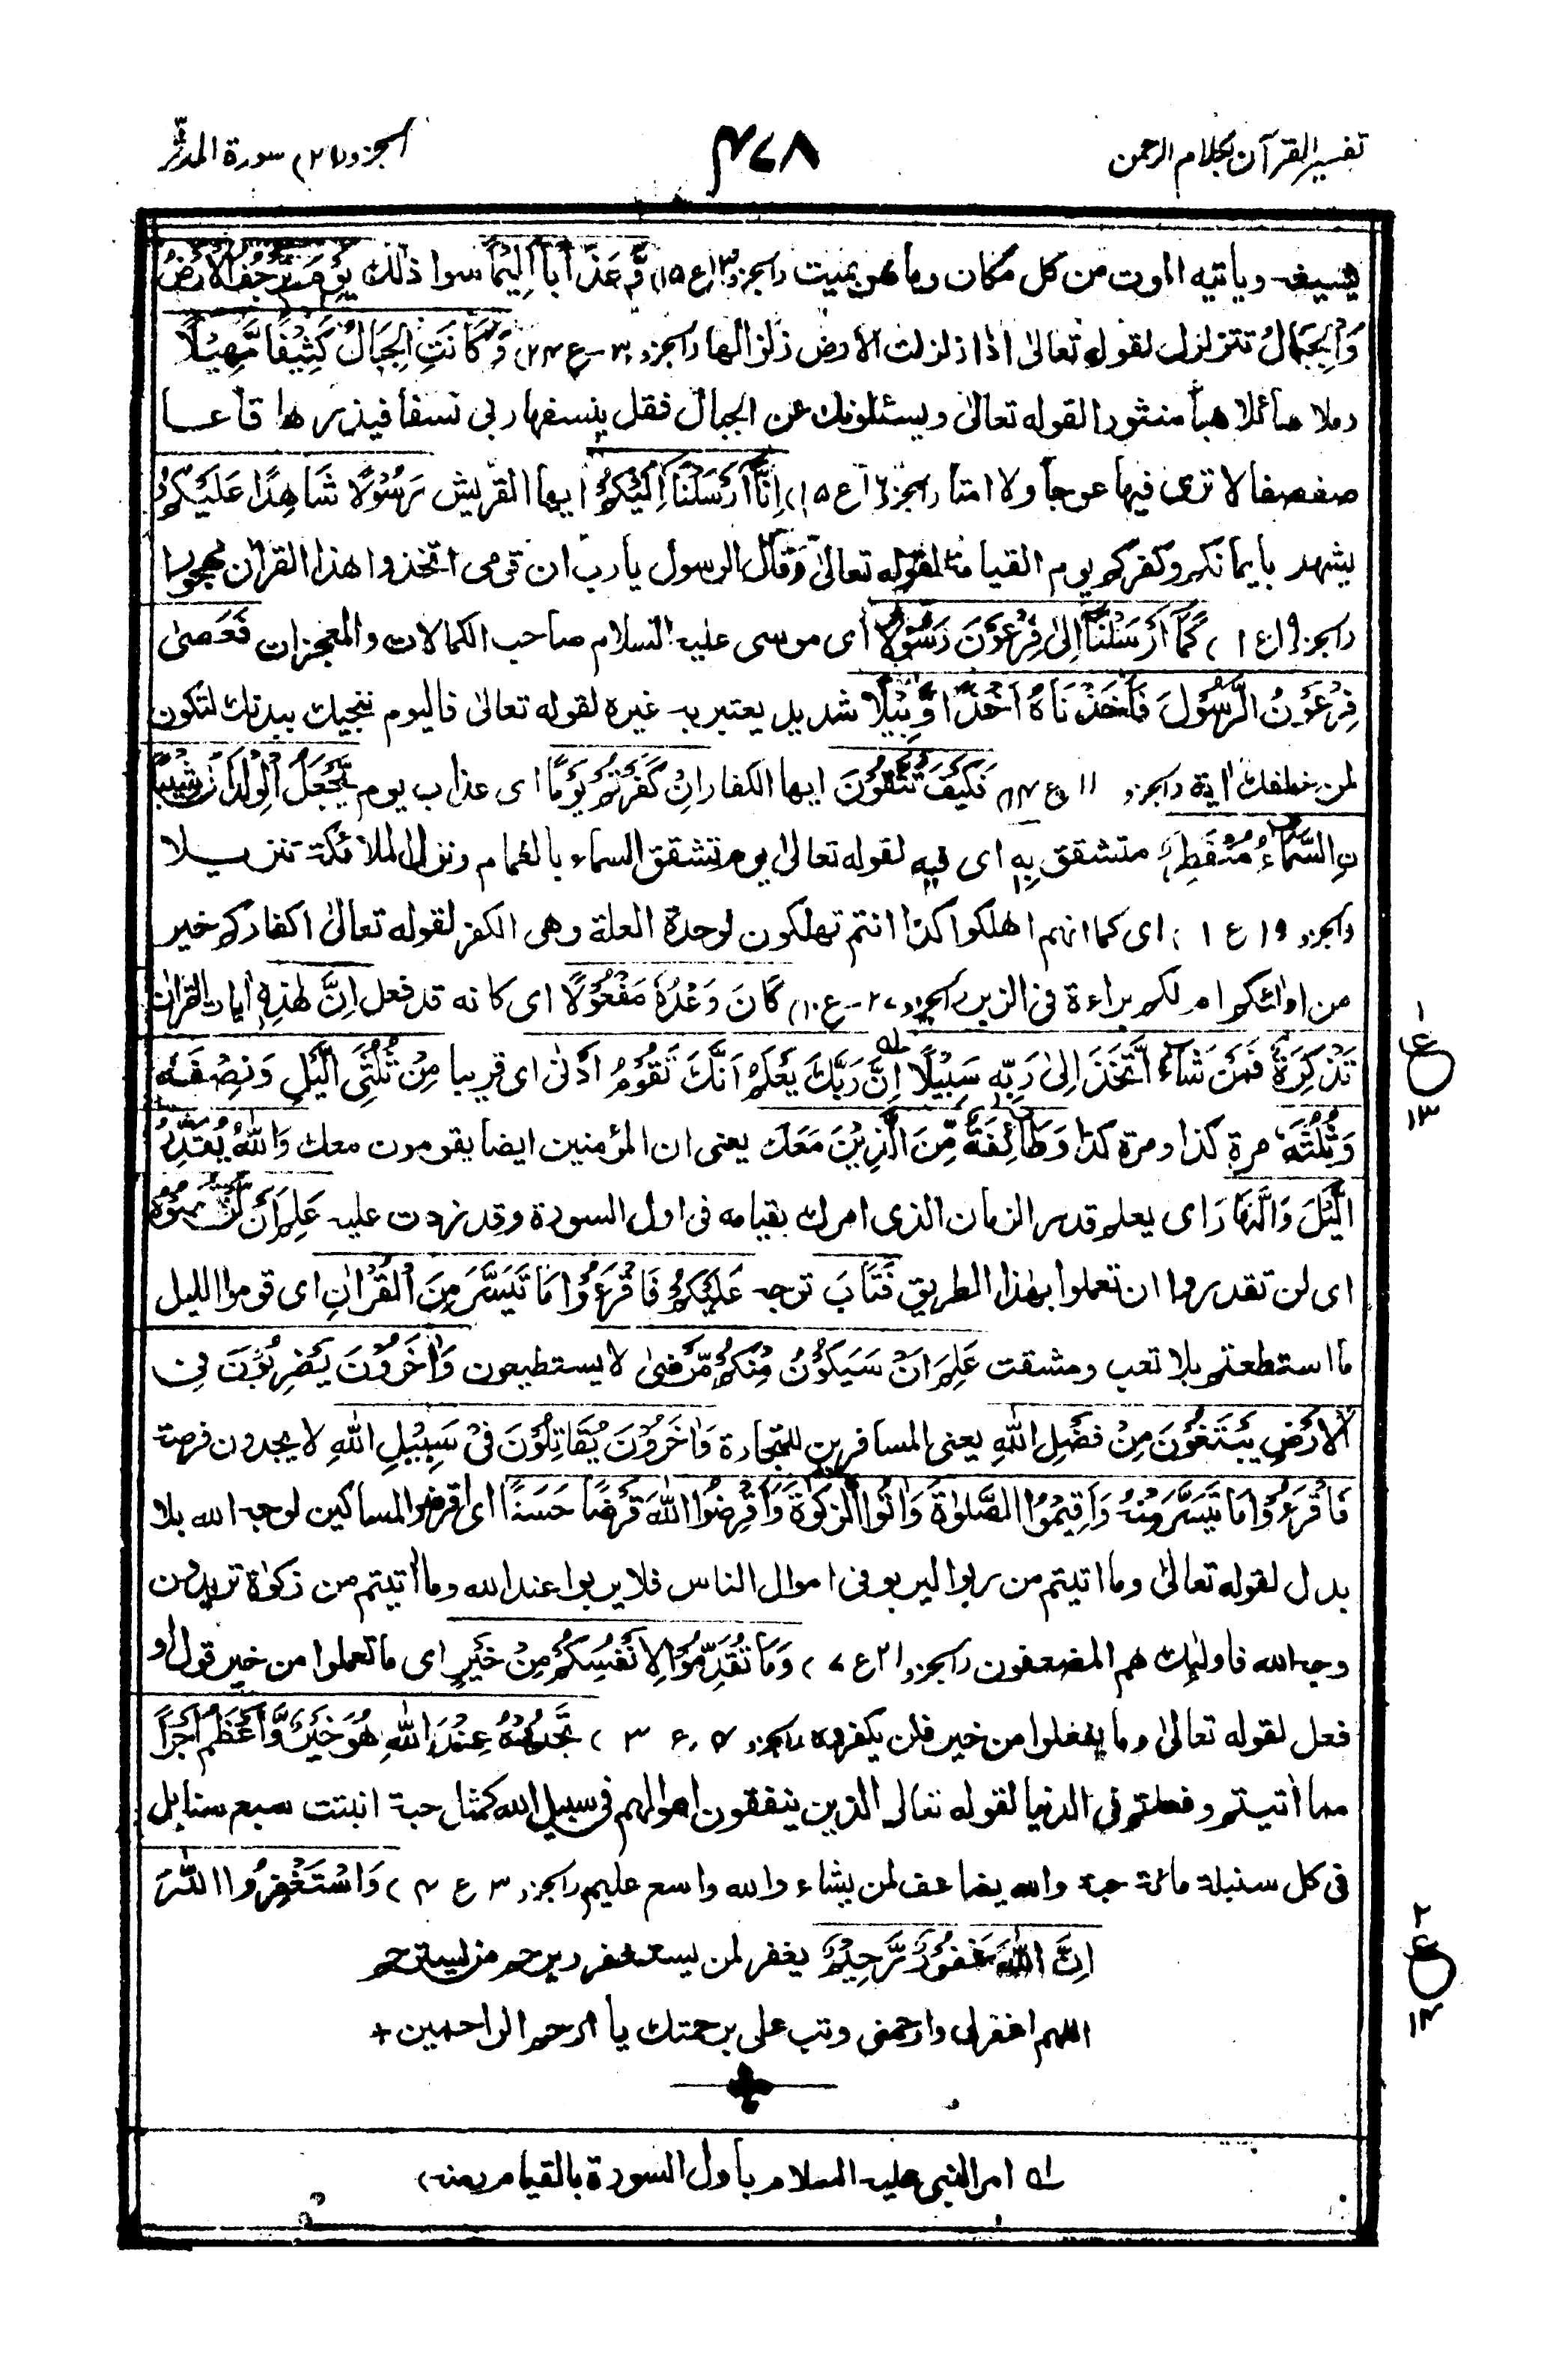 تفسير القرآن بكلام الرحمن
٤٧٨
الجزو (٢٩) سورة المدثر
يسيغه ويأتيه الموت من كل مكان وما هو بميت (الجزو ١٣ ع ١٥) وَّعَذَابًا اَلِيْمًا سوا ذلك يَوْمَ تَرْجُفُ الْاَرْضُ
وَالْجِبَالُ تتزلزل لقوله تعالى اذا زلزلت الارض زلزالها (الجزو ٣٠ - ع ٢٤) وَكَانَتِ الْجِبَالُ كَثِيْبًا مَّهِيْلًا
رملا سائلا هبأ منثورا لقوله تعالى ويسئلونك عن الجبال فقل ينسفها ربى نسفا فيذرها قاعا
صفصفا لا ترى فيها عوجا ولا امتا (الجزو ١٦ ع ١٥) اِنَّا اَرْسَلْنَا اِلَيْكُمْ ايها القريش رَسُوْلًا شَاهِدًا عَلَيْكُمْ
يشهد بايمانكم وكفركم يوم القيامة لقوله تعالى وَقَالَ الرسول يارب ان قومى اتخذوا هذا القرآن مهجورا
(الجزو ١٩ ع ١) كَمَا اَرْسَلْنَا اِلٰى فِرْعَوْنَ رَسُوْلًا اى موسى عليه السلام صاحب الكمالات والمعجزات فَعَصٰى
فِرْعَوْنُ الرَّسُوْلَ فَاَخَذْنَاهُ اَخْذًا وَّبِيْلًا شديد يعتبر به غيره لقوله تعالى فاليوم ننجيك ببدنك لتكون
لمن خلفك اية (الجزو ١١ ع ١٤) فَكَيْفَ تَتَّقُوْنَ ايها الكفار اِنْ كَفَرْتُمْ يَوْمًا اى عذاب يوم يَّجْعَلُ الْوِلْدَانَ شِيْبًا
نِ السَّمَاءُ مُنْفَطِرٌ متشقق بِهٖ اى فيه لقوله تعالى يوم تشقق السماء بالغمام ونزل الملائكة تنزيلا
(الجزو ١٩ ع ١) اى كما انهم اهلكوا كذا انتم تهلكون لوحدة العلة وهى الكفر لقوله تعالى اكفاركم خير
من اولئكم ام لكم براءة فى الزبر (الجزو ٢٧ - ع ١٠) كَانَ وَعْدُهٗ مَفْعُوْلًا اى كانه قد فعل اِنَّ هٰذِهٖ ايات القرآن
تَذْكِرَةٌ فَمَنْ شَاءَ اتَّخَذَ اِلٰى رَبِّهٖ سَبِيْلًا اِنَّ رَبَّكَ يَعْلَمُ اَنَّكَ تَقُوْمُ اَدْنٰى اى قريبا مِنْ ثُلُثَىِ الَّيْلِ وَنِصْفَهٗ
وَثُلُثَهٗ مرة كذا ومرة كذا وَطَائِفَةٌ مِّنَ الَّذِيْنَ مَعَكَ يعنى ان المؤمنين ايضا يقومون معك وَاللّٰهُ يُقَدِّرُ
الَّيْلَ وَالنَّهَارَ اى يعلم قدر الزمان الذى امرك بقيامه فى اول السورة وقد زدت عليه عَلِمَ اَنْ لَّنْ تُحْصُوْهُ
اى لن تقدروا ان تعملوا بهذا الطريق فَتَابَ توجه عَلَيْكُمْ فَاقْرَءُوْا مَا تَيَسَّرَ مِنَ الْقُرْاٰنِ اى قوموا الليل
ما استطعتم بلا تعب ومشقت عَلِمَ اَنْ سَيَكُوْنُ مِنْكُمْ مَّرْضٰى لا يستطيعون وَاٰخَرُوْنَ يَضْرِبُوْنَ فِى
الْاَرْضِ يَبْتَغُوْنَ مِنْ فَضْلِ اللّٰهِ يعنى المسافرين للتجارة وَاٰخَرُوْنَ يُقَاتِلُوْنَ فِىْ سَبِيْلِ اللّٰهِ لا يجدون فرصة
فَاقْرَءُوْا مَا تَيَسَّرَ مِنْهُ وَاَقِيْمُوا الصَّلٰوةَ وَاٰتُوا الزَّكٰوةَ وَاَقْرِضُوا اللّٰهَ قَرْضًا حَسَنًا اى اقرضوا المساكين لوجه الله بلا
بدل لقوله تعالى وما اتيتم من ربوا ليربو فى اموال الناس فلا يربوا عند الله وما اتيتم من زكوة تريدون
وجه الله فاولئك هم المضعفون (الجزو ٢١ ع ٧) وَمَا تُقَدِّمُوْا لِاَنْفُسِكُمْ مِنْ خَيْرٍ اى ما تعملوا من خير قول او
فعل لقوله تعالى وما يفعلوا من خير فلن يكفروه (الجزو ٤ ع ٣) تَجِدُوْهُ عِنْدَ اللّٰهِ هُوَ خَيْرًا وَّاَعْظَمَ اَجْرًا
مما اتيتم وفعلتم فى الدنيا لقوله تعالى الذين ينفقون اموالهم فى سبيل الله كمثل حبة انبتت سبع سنابل
فى كل سنبلة مائة حبة والله يضاعف لمن يشاء والله واسع عليم (الجزو ٣ ع ٤) وَاسْتَغْفِرُوا اللّٰهَ
اِنَّ اللّٰهَ غَفُوْرٌ رَّحِيْمٌ يغفر لمن يستغفر ويرحم من ليسترحم
اللهم اغفرلى وارحمنى وتب على برحمتك يا ارحم الراحمين +
له امر النبى عليه السلام بأول السورة بالقيام (منه)
١
ع
١٣
٢
ع
١٤